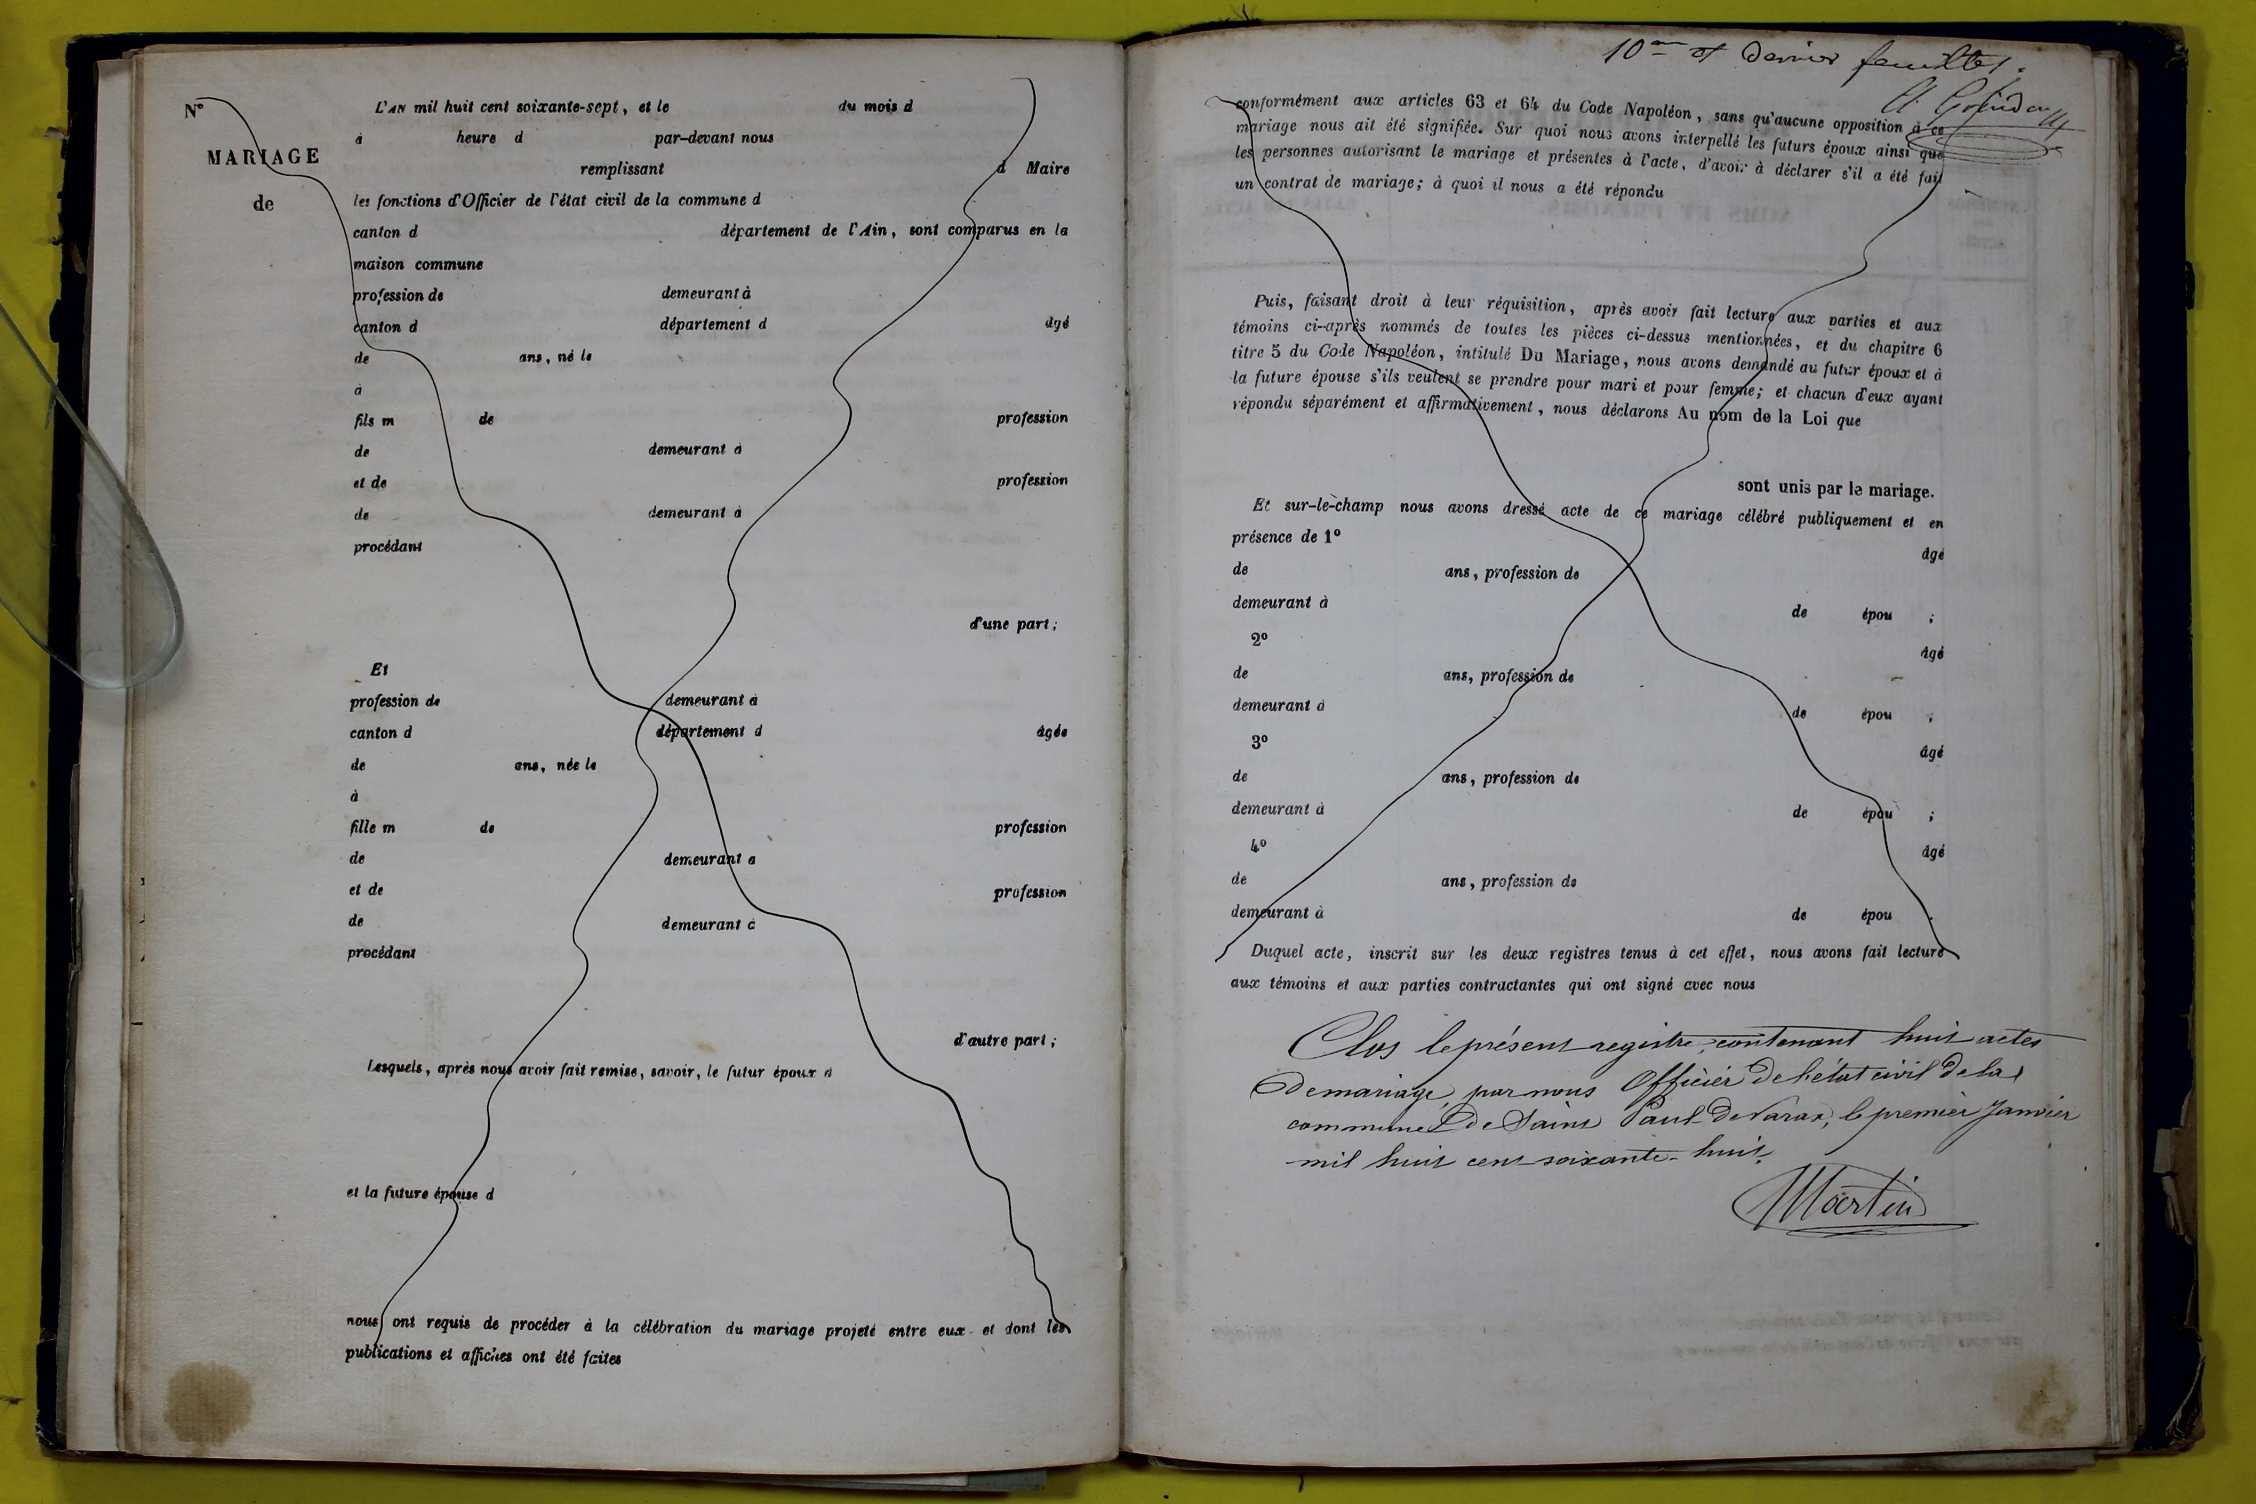 N°
MARIAGE
de
L'AN mil huit cent soixante-sept, et le du mois d
à heure d par-devant nous
remplissant d Maire
les fonctions d'Officier de l'état civil de la commune d
canton d département de l'Ain, sont comparus en la
maison commune
profession de demeurant à
canton d département d âgé
de ans, né le
à
fils m de profession
de demeurant à
et de profession
de demeurant à
procédant
d'une part;
Et
profession de demeurant à
canton d département d âgée
de ans, née le
à
fille m de profession
de demeurant à
et de profession
de demeurant à
procédant
d'autre part;
Lesquels, après nous avoir fait remise, savoir, le futur époux d
et la future épouse d
nous ont requis de procéder à la célébration du mariage projeté entre eux et dont les
publications et affiches ont été faites
10me et dernier feuillet.
conformément aux articles 63 et 64 du Code Napoléon, sans qu'aucune opposition à ce
mariage nous ait été signifiée. Sur quoi nous avons interpellé les futurs époux ainsi que
les personnes autorisant le mariage et présentes à l'acte, d'avoir à déclarer s'il a été fait
un contrat de mariage; à quoi il nous a été répondu
Puis, faisant droit à leur réquisition, après avoir fait lecture aux parties et aux
témoins ci-après nommés de toutes les pièces ci-dessus mentionnées, et du chapitre 6
titre 5 du Code Napoléon, intitulé Du Mariage, nous avons demandé au futur époux et à
la future épouse s'ils veulent se prendre pour mari et pour femme; et chacun d'eux ayant
répondu séparément et affirmativement, nous déclarons Au nom de la Loi que
sont unis par le mariage.
Et sur-le-champ nous avons dressé acte de ce mariage célébré publiquement et en
présence de 1° âgé
de ans, profession de
demeurant à de épou ;
2° âgé
de ans, profession de
demeurant à de épou ;
3° âgé
de ans, profession de
demeurant à de épou ;
4° âgé
de ans, profession de
demeurant à de épou .
Duquel acte, inscrit sur les deux registres tenus à cet effet, nous avons fait lecture
aux témoins et aux parties contractantes qui ont signé avec nous
Clos le présent registre, contenant huit actes
de mariage, par nous Officier de l'état civil de la
commune de Saint Paul de Varax, le premier Janvier
mil huit cent soixante-huit.
Martin